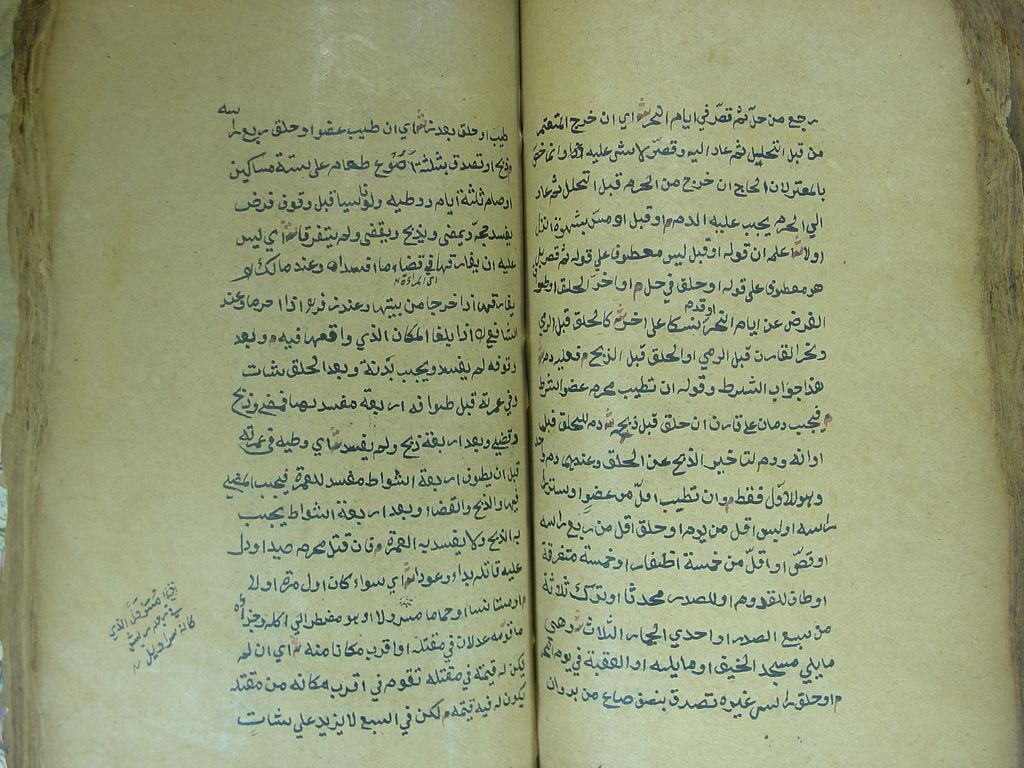 رجع من حل ثم قصر في ايام النحر ش اي ان خرج المعتمر
من قبل التحليل ثم عاد اليه وقصر لا شي عليه وانما خص
بالمعتمر لان الحاج ان خرج من الحرم قبل التحلل ثم عاد
الي الحرم يجب عليه الدم م او قبل او مس بشهوة انزل
او لا ش علم ان قوله او قبل ليس معطوف علي قوله ثم قصر بل
هو معطوف علي قوله او حلق في حل م او اخر الحلق او طواف
الفرض عن ايام النحر او قدم نسكا علي اخر ش كالحلق قبل الرمي
ونحر القارن قبل الرمي او الحلق قبل الذبح م فعليه دم ش
هذا جواب الشرط وقوله ان تطيب محرم عضوا الشرط
م فيجب دمان علي قارن ان حلق قبل ذبحه ش دم للحلق قبل
اوانه ودم لتاخير الذبح عن الحلق وعندهما دم
وهو للاول فقط م وان تطيب اقل من عضو او ستر
راسه او لبس اقل من يوم او حلق اقل من ربع راسه
او قص اقل من خمسة اظفار او خمسة متفرقة
او طاف للقدوم او للصدر محدثا او ترك ثلاثة
من سبع الصدر او احدي الجمار الثلاث ش وهي
ما يلي مسجد الخيف او ما يليه او العقبة في يوم النحر
م او حلق راس غيره تصدق بنصف صاع من بر وان
طيب او حلق بعذر ش اي ان طيب عضوا او حلق ربع راسه
م ذبح او تصدق بثلثة اصوع طعام علي ستة مساكين
او صام ثلثة ايام ووطيه ولو ناسيا قبل وقوف فرض
يفسد حجه ويمضي ويذبح ويقضي ولم يتفرقا ش اي ليس
عليه ان يفارقها في قضاء ما افسداه وعند مالك
اي المراة
يفارقها اذا خرجا من بيتهما وعند زفر اذا احرما وعند
الشافعي اذا بلغا المكان الذي واقعها فيه م وبعد
وقوفه لم يفسد ويجب بدنة وبعد الحلق شاة
وفي عمرته قبل طوافه اربعة مفسد لها فمضي وذبح
وقضي وبعد اربعة ذبح ولم يفسد ش اي وطيه في عمرته
قبل ان يطوف اربعة اشواط مفسد للعمرة فيجب المضي
فيها والذبح والقضاء وبعد اربعة اشواط يجب
به الذبح ولا يفسد به العمرة م فان قتل محرم صيدا او دل
عليه قاتله بداء وعودا ش اي سواء كان اول مرة او لا
م او مستانسا او حماما مسرولا او هو مضطر الي اكله وجزاؤه
ما قومه عدلان في مقتله او اقرب مكان منه ش اي ان لم
يكن له قيمة في مقتله تقوم في اقرب مكانه من مقتله
يكون له فيه قيمة م لكن في السبع لا يزيد علي شاة